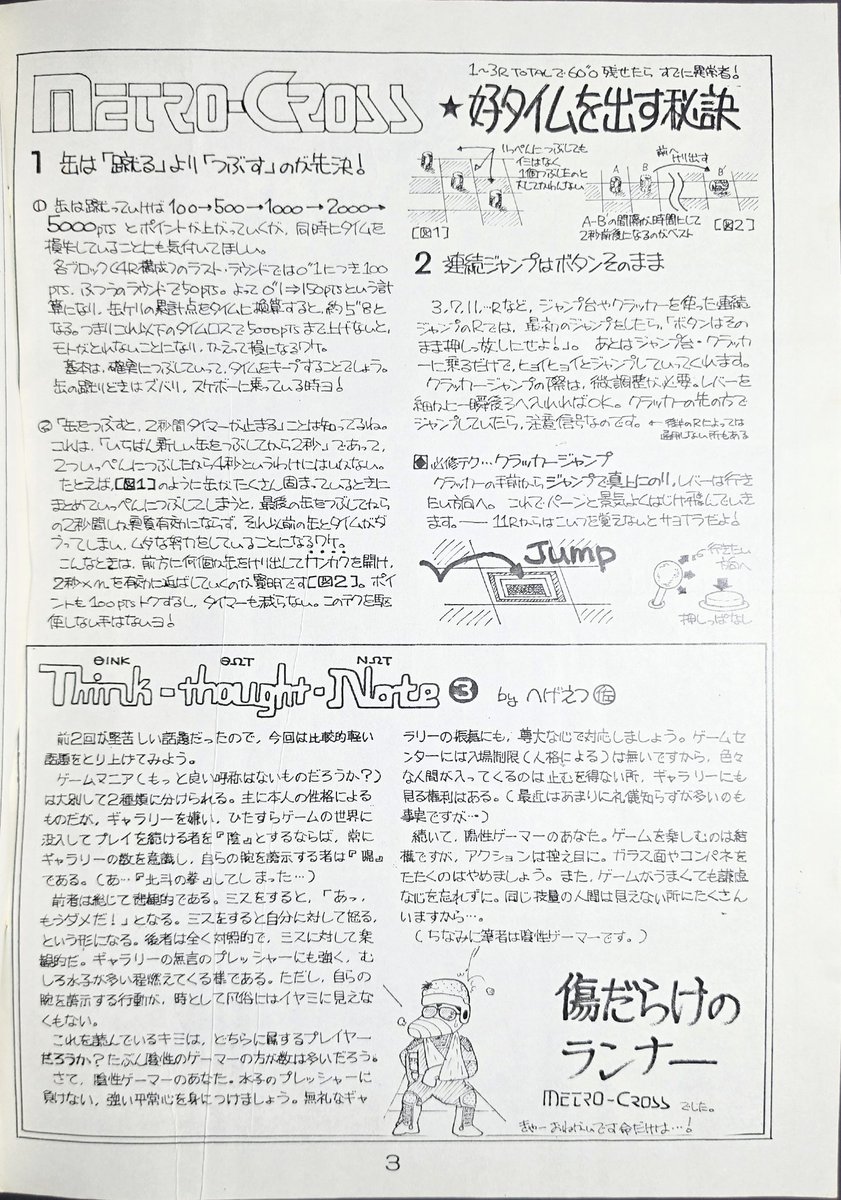 METRO-CROSS
1〜3R TOTALで60"0 残せたら すでに異常者!
★好タイムを出す秘訣
1 缶は「蹴る」より「つぶす」のが先決!
① 缶は蹴っていけば 100→500→1000→2000→
5000pts とポイントが上がっていくが、同時にタイムを
損失していることにも気付いてほしい。
各ブロック(4R構成)のラスト・ラウンドでは0"1につき100
pts、ふつうのラウンドで50pts。よって0"1⇒150ptsという計
算になり、缶ケリの累計点をタイムに換算すると、約5"8と
なる。つまりこれ以下のタイムロスで5000ptsまで上げないと、
モトがとれないことになり、かえって損になるワケ。
基本は、確実につぶしていって、タイムをキープすることでしょう。
缶の蹴りどきはズバリ、スケボーに乗っている時ヨ!
② 「缶をつぶすと、2秒間タイマーが止まる」ことは知ってるね。
これは、「いちばん新しい缶をつぶしてから2秒」であって、
2ついっぺんにつぶしたから4秒というわけにはいかない。
たとえば、[図1]のように缶がたくさん固まっているときに
まとめていっぺんにつぶしてしまうと、最後の缶をつぶしてから
の2秒間しか実質有効にならず、それ以前の缶とタイムがダ
ブってしまい、ムダな努力をしていることになるワケ。
こんなときは、前方に何個か缶をけり出してカンカクを開け、
2秒×nを有効に延ばしていくのが賢明です[図2]。ポイ
ントも100ptsトクするし、タイマーも減らない。このテクを駆
使しない手はないヨ!
いっぺんにつぶしても
イミはなく
1個つぶしたのと
大してかわんない
[図1]
前へ
けり出す
A B B'
A-B'の間隔が時間にして
2秒前後になるのがベスト
[図2]
2 連続ジャンプはボタンそのまま
3,7,11…Rなど、ジャンプ台やクラッカーを使った連続
ジャンプのRでは、最初のジャンプをしたら、「ボタンはその
まま押しっ放しにせよ!」。あとはジャンプ台・クラッカ
ーに乗るだけで、ヒョイヒョイとジャンプしていってくれます。
クラッカージャンプの際は、微調整が必要。レバーを
細かに一瞬後ろへ入れればOK。クラッカーの先の方で
ジャンプしていたら、注意信号なのです。
←後半のRによっては
通用しない所もある
必修テク…クラッカージャンプ
クラッカーの手前からジャンプで真上にのり、レバーは行き
たい方向へ。これでパーンと景気よくはじけ飛んでいき
ます。── 11Rからはこいつを覚えないとサヨナラだよ!
Jump
行きたい
方向へ
押しっぱなし
ΘINK ΘΩT NΩT
Think-thought-Note ③ by へげえつ 佐
前2回が堅苦しい話題だったので、今回は比較的軽い
話題をとり上げてみよう。
ゲームマニア(もっと良い呼称はないものだろうか?)
は大別して2種類に分けられる。主に本人の性格による
ものだが、ギャラリーを嫌い、ひたすらゲームの世界に
没入してプレイを続ける者を『陰』とするならば、常に
ギャラリーの数を意識し、自らの腕を誇示する者は『陽』
である。(あ…『北斗の拳』してしまった…)
前者は総じて悲観的である。ミスをすると、「あっ、
もうダメだ!」となる。ミスをすると自分に対して怒る、
という形になる。後者は全く対照的で、ミスに対して楽
観的だ。ギャラリーの無言のプレッシャーにも強く、む
しろ水子が多い程燃えてくる様である。ただし、自らの
腕を誇示する行動が、時として凡俗にはイヤミに見えな
くもない。
これを読んでいるキミは、どちらに属するプレイヤー
だろうか?たぶん陰性のゲーマーの方が数は多いだろう。
さて、陰性ゲーマーのあなた。水子のプレッシャーに
負けない、強い平常心を身につけましょう。無礼なギャ
ラリーの振舞にも、尊大な心で対応しましょう。ゲームセ
ンターには入場制限(人格による)は無いですから、色々
な人間が入ってくるのは止むを得ない所、ギャラリーにも
見る権利はある。(最近はあまりに礼儀知らずが多いのも
事実ですが…)
続いて、陽性ゲーマーのあなた。ゲームを楽しむのは結
構ですが、アクションは控え目に。ガラス面やコンパネを
たたくのはやめましょう。また、ゲームがうまくても謙虚
な心を忘れずに。同じ技量の人間は見えない所にたくさん
いますから…。
(ちなみに筆者は陰性ゲーマーです。)
傷だらけの
ランナー
METRO-CROSS でした。
きゃー おねがいです命だけは…!
3